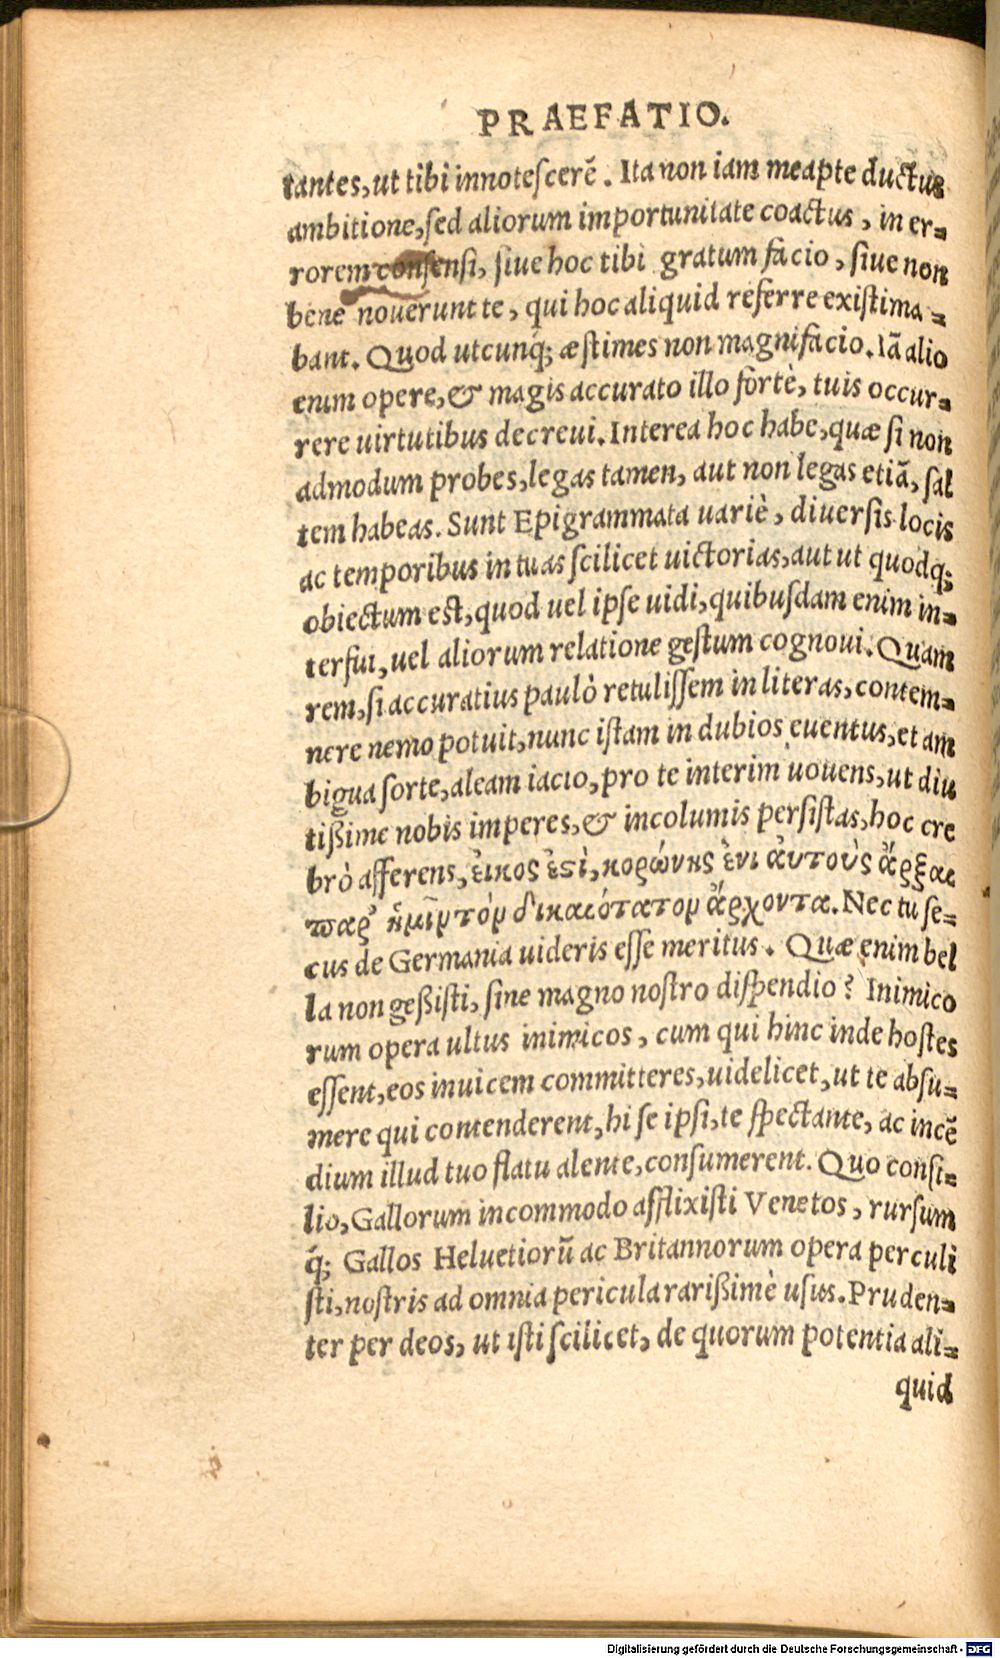 PRAEFATIO.
tantes, ut tibi innotescerẽ. Ita non iam meapte ductus
ambitione, sed aliorum importunitate coactus, in er=
rorem consensi, siue hoc tibi gratum facio, siue non
bene nouerunt te, qui hoc aliquid referre existima=
bant. Quod utcunq́; æstimes non magnifacio. Iã alio
enim opere, & magis accurato illo fortè, tuis occur=
rere uirtutibus decreui. Interea hoc habe, quæ si non
admodum probes, legas tamen, aut non legas etiã, sal
tem habeas. Sunt Epigrammata uariè, diuersis locis
ac temporibus in tuas scilicet uictorias, aut ut quodq;
obiectum est, quod uel ipse uidi, quibusdam enim in=
terfui, uel aliorum relatione gestum cognoui. Quam
rem, si accuratius paulò retulissem in literas, contem=
nere nemo potuit, nunc istam in dubios euentus, et am
bigua sorte, aleam iacio, pro te interim uouens, ut diu
tißime nobis imperes, & incolumis persistas, hoc cre
brò afferens, ἐικος ἐστὶ, κορώνης ἑνι ἀυτοὺς ἄρξαι
παρ᾽ ἡμῖν τὸν δικαιότατον ἄρχοντα. Nec tu se=
cus de Germania uideris esse meritus. Quæ enim bel
la non geßisti, sine magno nostro dispendio? Inimico
rum opera ultus inimicos, cum qui hinc inde hostes
essent, eos inuicem committeres, uidelicet, ut te absu=
mere qui contenderent, hi se ipsi, te spectante, ac incẽ
dium illud tuo flatu alente, consumerent. Quo consi=
lio, Gallorum incommodo afflixisti Venetos, rursum
q́; Gallos Heluetiorũ ac Britannorum opera perculi
sti, nostris ad omnia pericula rarißimè usus. Pruden=
ter per deos, ut isti scilicet, de quorum potentia ali=
quid
Digitalisierung gefördert durch die Deutsche Forschungsgemeinschaft - DFG